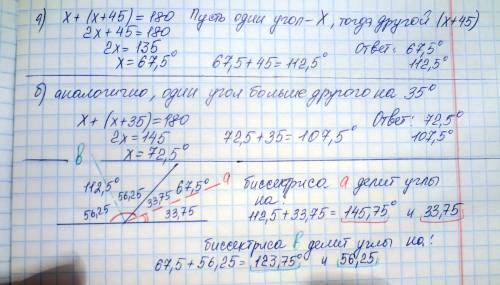 а) x + (x+45) = 180 Пусть один угол - X, тогда другой (x+45)
2x + 45 = 180 Ответ: 67,5°
2x = 135 112,5°
x = 67,5° 67,5 + 45 = 112,5°
б) аналогично, один угол больше другого на 35°
x + (x+35) = 180 Ответ: 72,5°
2x = 145 72,5 + 35 = 107,5° 107,5°
x = 72,5°
в
112,5° 56,25 67,5° а биссектриса а делит углы
56,25 33,75 33,75 на:
112,5 + 33,75 = 145,75° и 33,75
биссектриса в делит углы на:
67,5 + 56,25 = 123,75° и 56,25